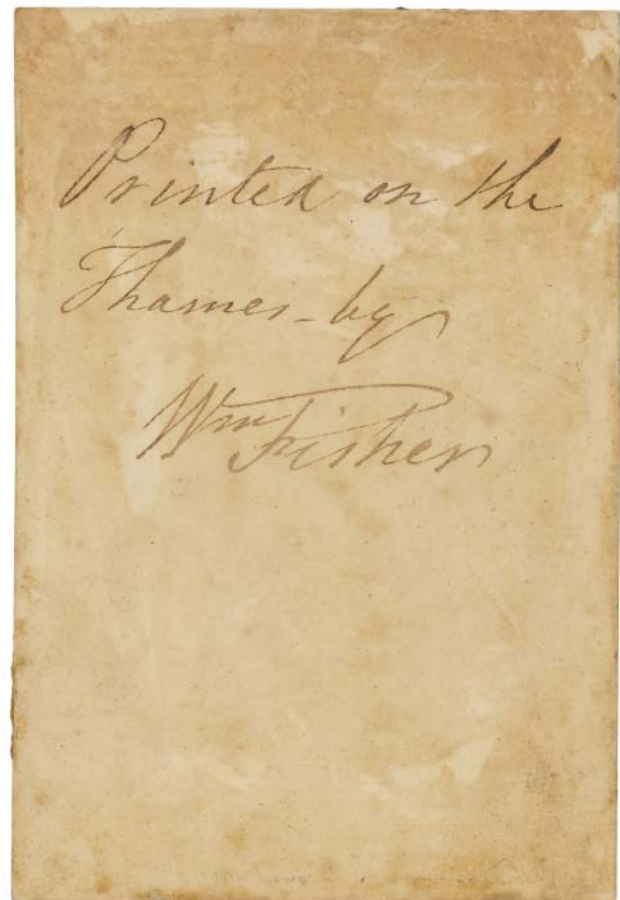 Printed on the
Thames - by
Wm Fisher